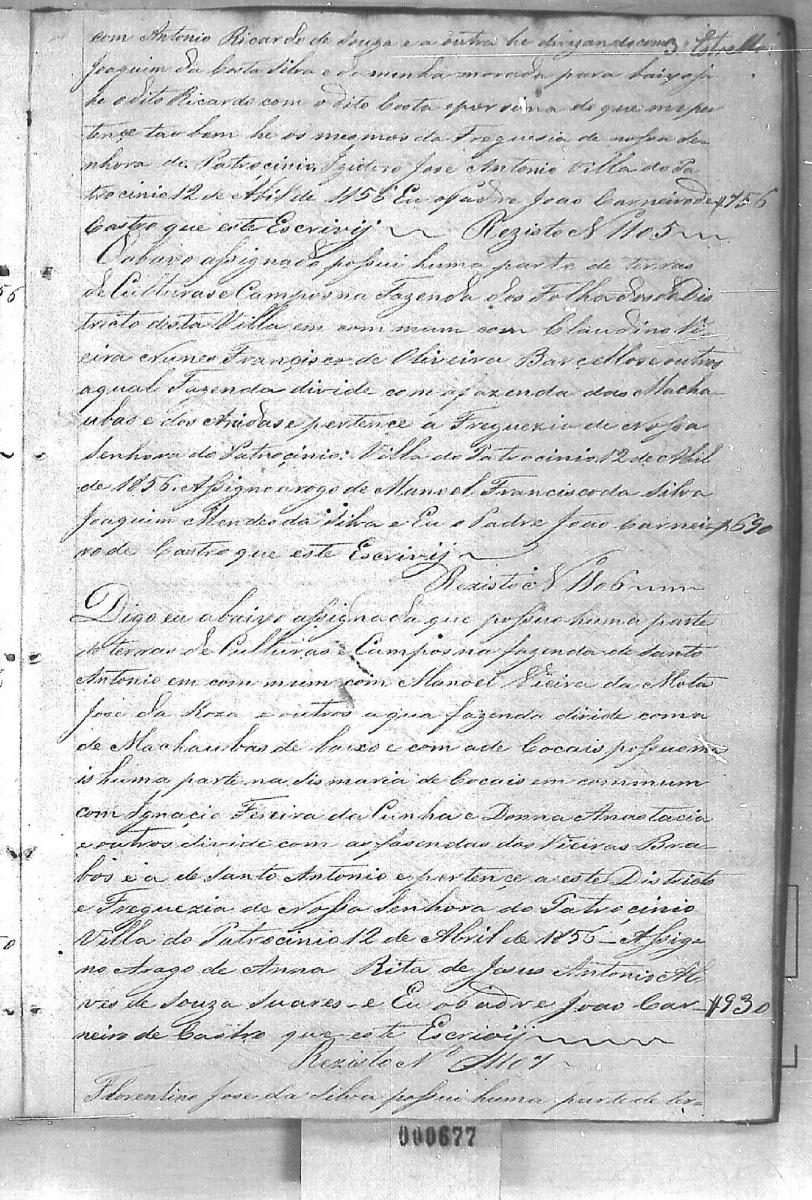 com Antonio Ricardo de Souza e a outra he divizando com
Joaquim da Costa Silva e da minha morada para baixo si
he o dito Ricardo com o dito Costa e por sima do que me per
tençe tao bem he os mesmos da Freguesia de nossa Se
nhora do Patrocinio. Izidoro Jose Antonio Villa do Pa
trocinio 12 de Abril de 1856 Eu o Padre Joao Carneiro de #756
Castro que este Escrivij Rezisto N 1105
O abaixo assignado possui huma parte de terras
de Culturas e Campos na Fazenda dos Folhados do Dis
tricto desta Villa em com mum com Claudino Vi
eira Nunes Françisco de Oliveira Barcellos e outros
a qual Fazenda divide com a fazenda das Macha
ubas e dos e pertençe a Freguezia de Nossa
Senhora do Patroçinio. Villa do Patrocinio 12 de Abril
de 1856. Assigno a rogo de Manoel Francisco da Silva
Joaquim Mendes da Silva e Eu o Padre João Carnei #690
ro de Castro que este Escrivij
Rezisto N 1106
Digo eu abaixo assignada que possuo huma parte
de terras de Culturas e Campos na fazenda de Santo
Antonio em com mum com Manoel Vieira da Mota
Jose da Roza e outros a qua fazenda divide com a
de Machaubas de baixo e com a de Cocais, possuo ma
is huma parte na Sismaria de Cocais em commum
com Ignaçio Fereira da Cunha e Donna Anastacia
e outros divide com as fasendas dos Vieiras Bra
bos e a de Santo Antonio e pertençe a este Districto
e Freguezia de Nossa Senhora do Patroçinio
Villa do Patrocinio 12 de Abril de 1856 Assig
no Arogo de Anna Rita de Jesus Antonio Al
ves de Souza Suares e Eu o Padre Joao Car #930
neiro de Castro que este Escrivij
Rezisto N 1107
Florentino Jose da Silva possui huma parte de ter
000677